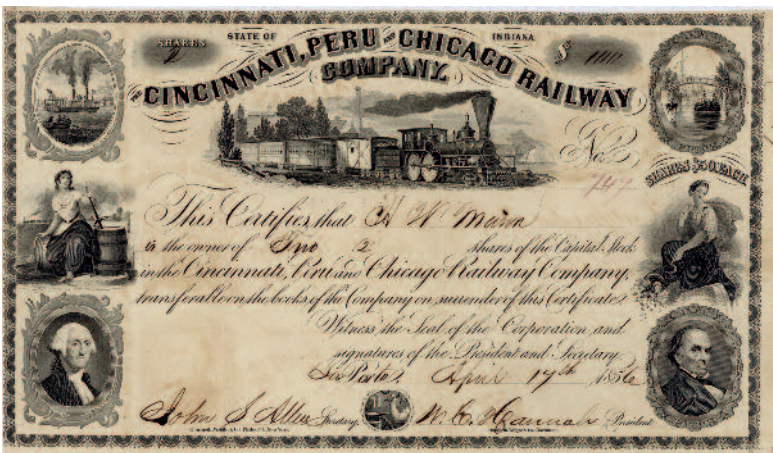 SHARES
2
STATE OF INDIANA
$ 100
THE CINCINNATI, PERU AND CHICAGO RAILWAY
COMPANY.
No.
747
SHARES $50 EACH
This Certifies that H W Mason
is the owner of Two 2 shares of the Capital Stock
in the Cincinnati, Peru and Chicago Railway Company,
transferable on the books of the Company on surrender of this Certificate.
Witness the Seal of the Corporation and
signatures of the President and Secretary.
La Porte, April 17th 1856
John S Allen Secretary. W. C. Hannah President